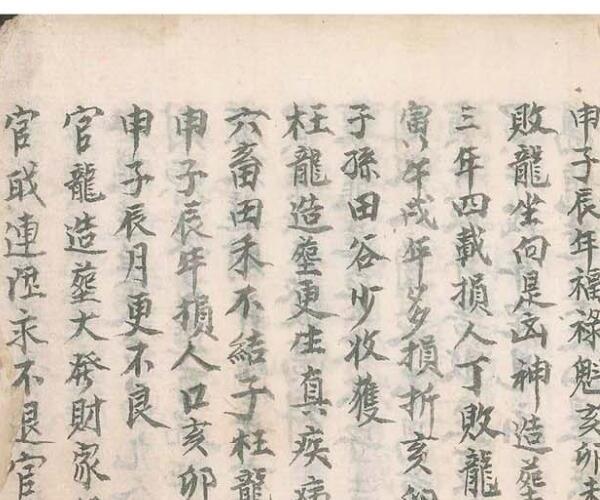 申子辰年福祿魁亥卯未
敗龍坐向是凶神造葬
三年四載損人丁敗龍
寅午戌年多損折亥卯
子孫田谷少收獲
枉龍造塟更生真疾病
六畜田禾不結子枉龍
申子辰年損人口亥卯
申子辰月更不良
官龍造塟大發財家
官職連陞永不退官